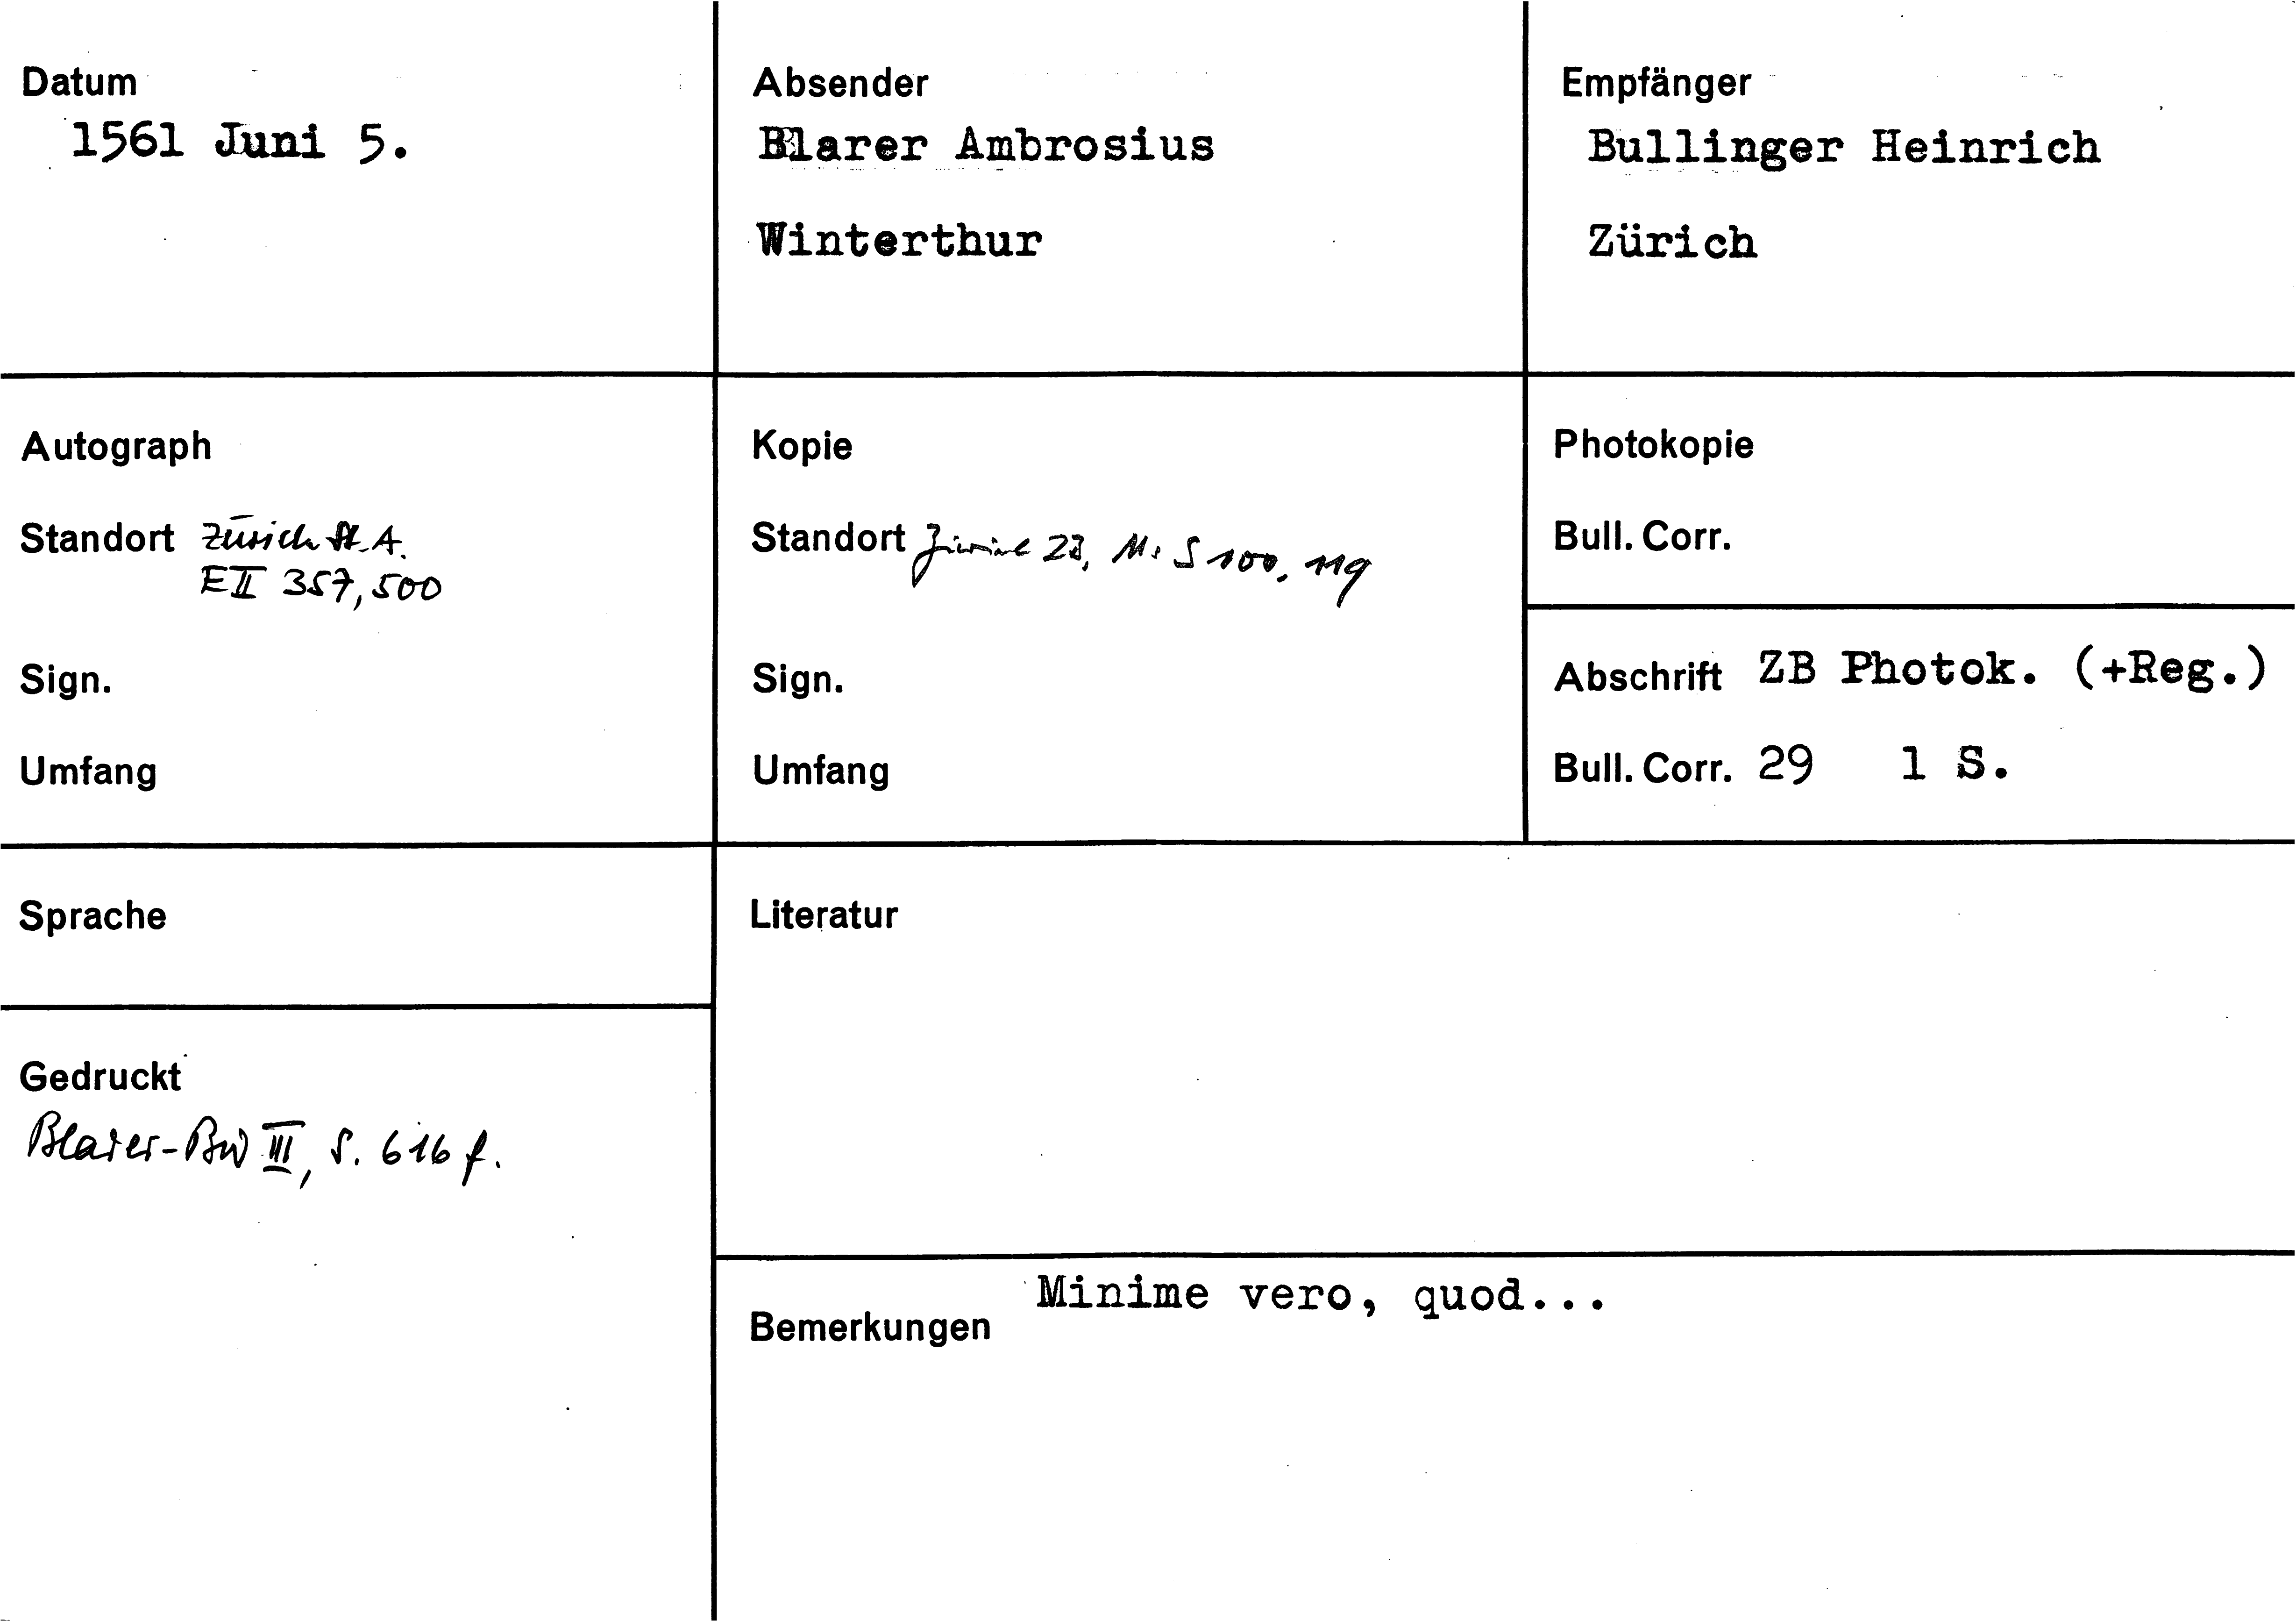 Datum
1561 Juni 5.
Absender
Blarer Ambrosius
Winterthur
Empfänger
Bullinger Heinrich
Zürich
Autograph
Standort Zürich St.A.
E II 357, 500
Sign.
Umfang
Kopie
Standort Zürich ZB, Ms S 100, 119
Sign.
Umfang
Photokopie
Bull. Corr.
Abschrift ZB Photok. (+Reg.)
Bull. Corr. 29 1 S.
Sprache
Literatur
Gedruckt
Blarer-BW III, S. 616 f.
Minime vero, quod...
Bemerkungen